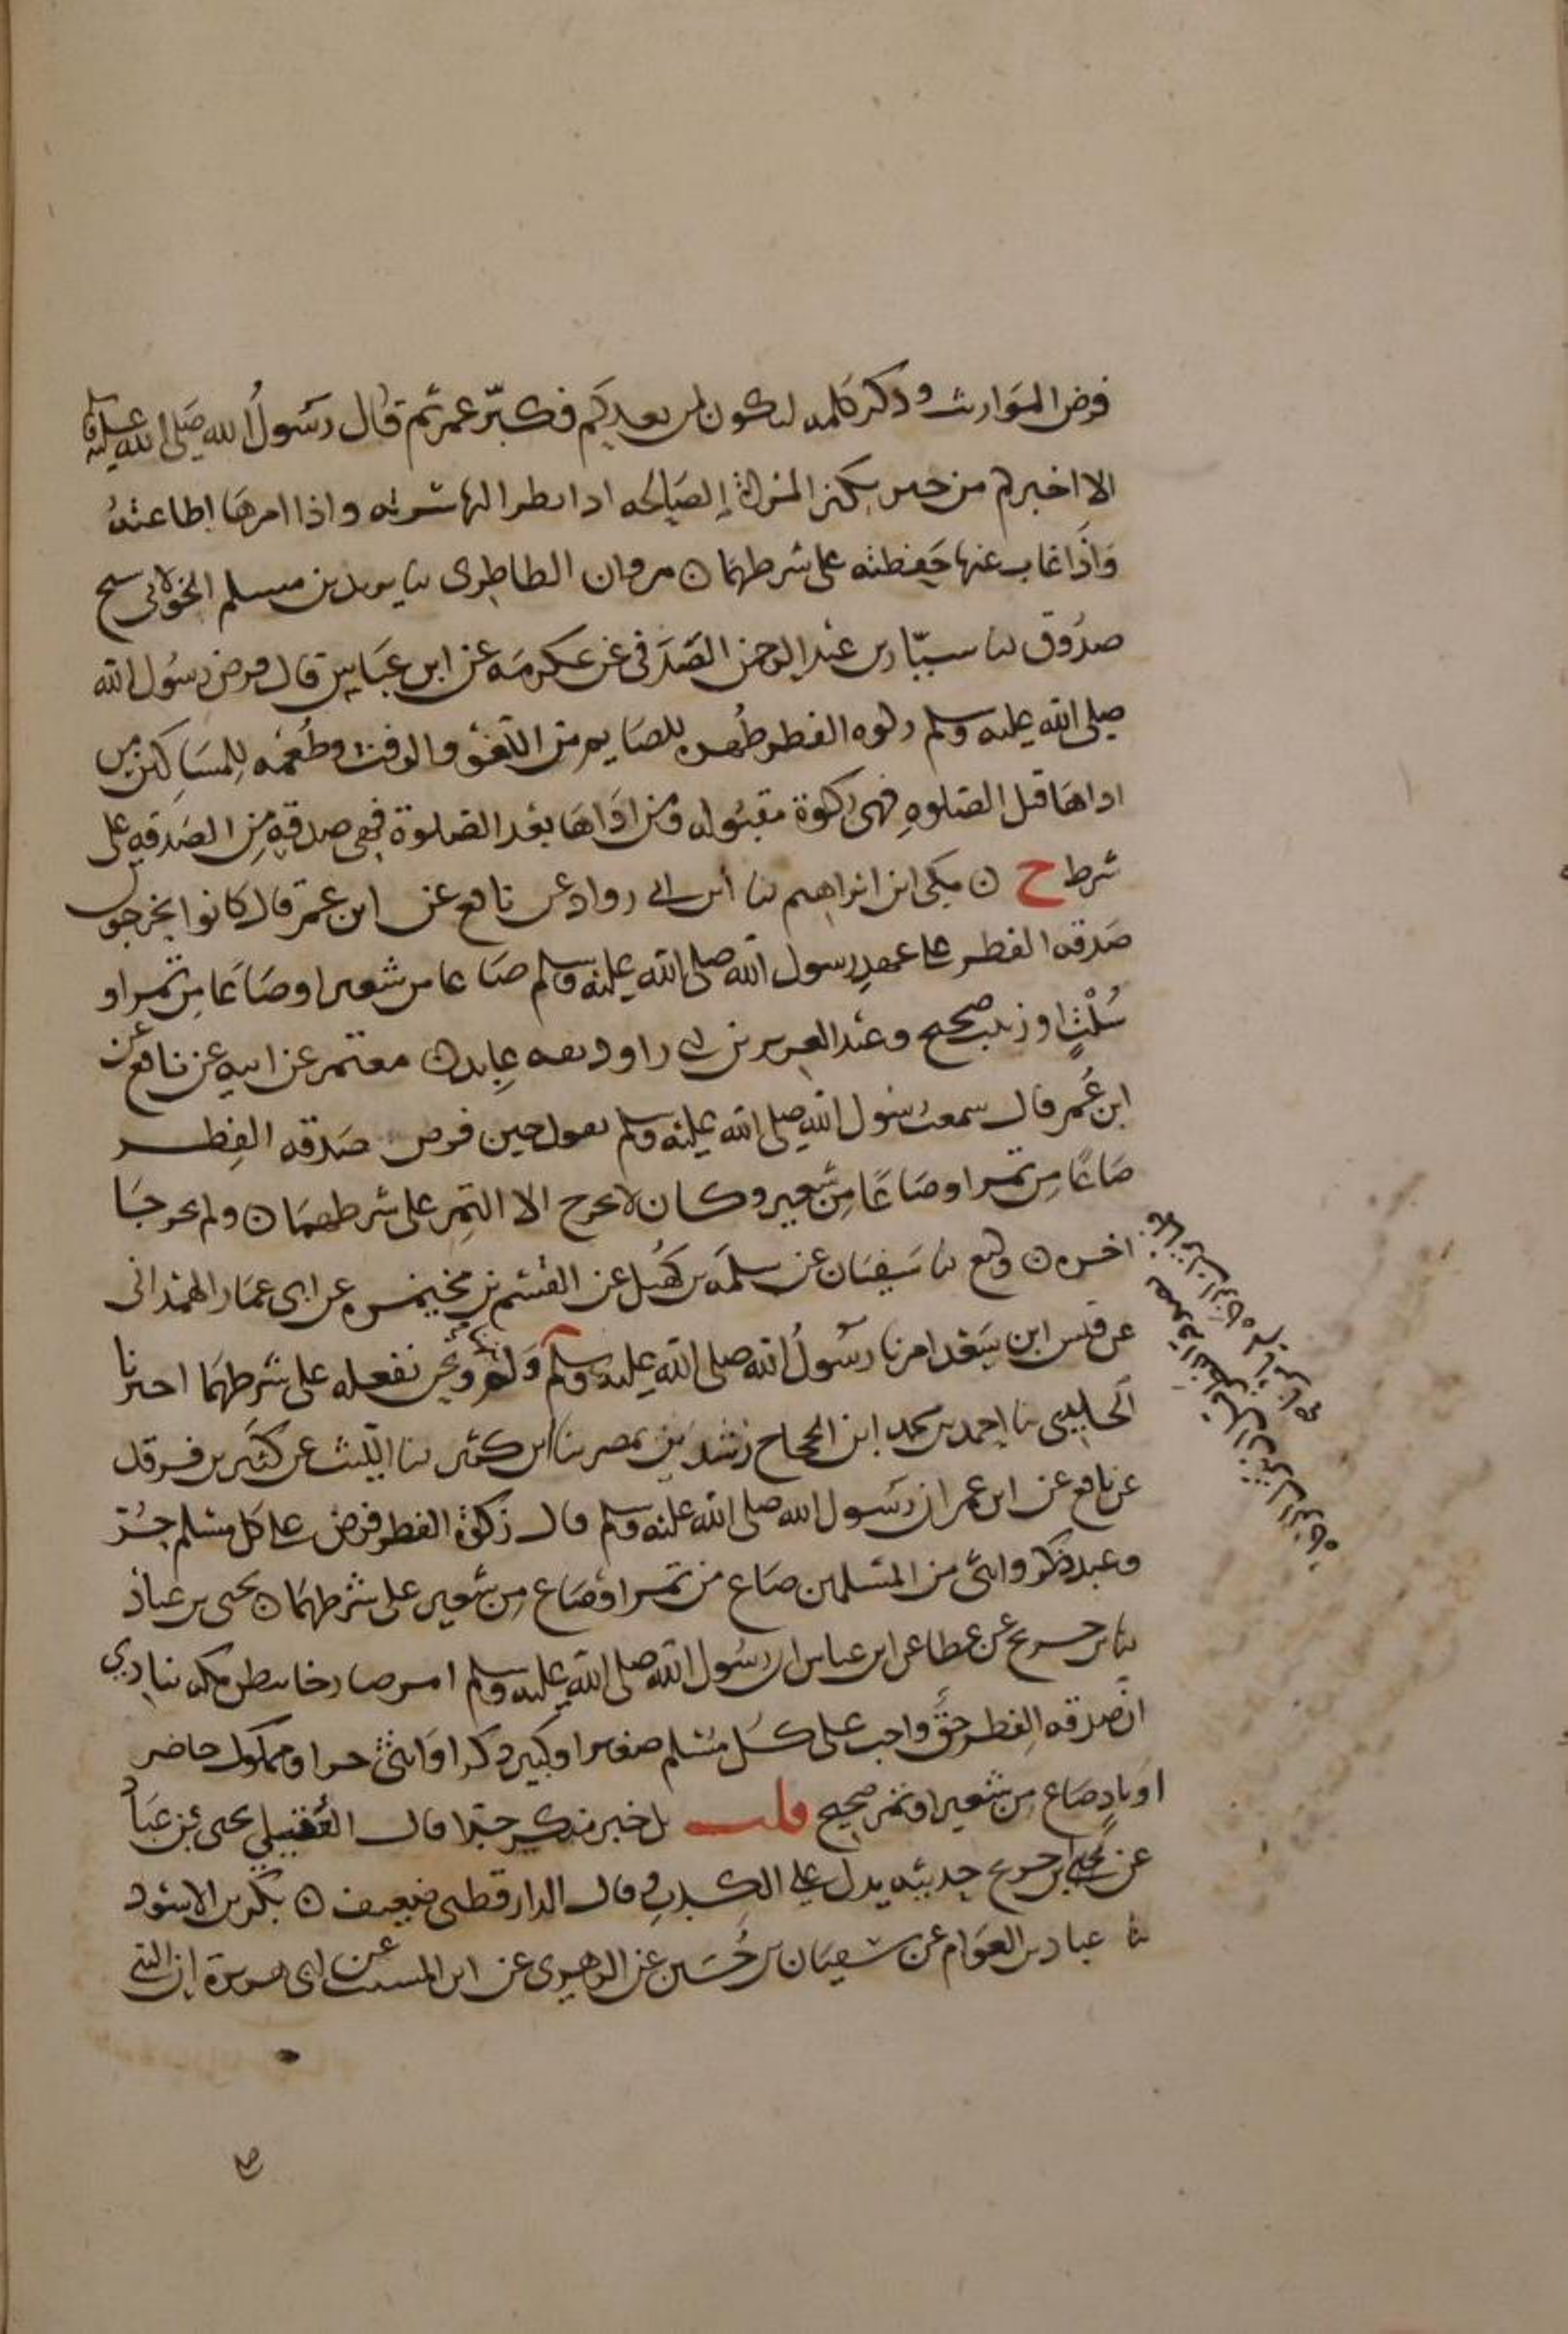 فرض المواريث وذكر كلمة لتكون لمن بعدكم فكبّر عمر ثم قال رسول الله صلى الله عليه وسلم
الا اخبركم من خير يكنز المرأة الصالحه اذا نظر اليها سرته واذا امرها اطاعته
واذا غاب عنها حفظته على شرطهما ن مروان الطاطري نا يزيد بن مسلم الخولاني شيخ
صدوق نا سيّار بن عبد الرحمن الصدفي عن عكرمه عن ابن عباس قال فرض رسول الله
صلى الله عليه وسلم زكوه الفطر طهره للصايم من اللغو والرفث وطعمه للمساكين من
اداها قبل الصلوه فهى زكوة مقبوله ومن اداها بعد الصلوة فهى صدقه من الصدقه على
شرط ح ن مكي ابن ابراهيم نا ابن ابي رواد عن نافع عن ابن عمر قال كانوا يخرجون
صدقه الفطر على عهد رسول الله صلى الله عليه وسلم صاعا من شعير او صاعا من تمر او
سُلْتٍ او زبيب صحيح وعبد العزيز بن ابي رواد ثقه عابد ن معتمر عن ابيه عن نافع عن
ابن عُمر قال سمعت رسول الله صلى الله عليه وسلم يقول حين فرض صدقه الفطر
صاعًا من تمر او صاعًا من شعير وكان لا يخرج الا التمر على شرطهما ن ولم يخرجا
اخره ن وكيع نا سفيان عن سلمه بن كهيل عن القسم بن مخيمره عن ابي عمار الهمداني
عن قيس ابن سعد امرنا رسولُ الله صلى الله عليه وسلم ونحن نفعله على شرطهما اخبرنا
نا احمد بن محمد ابن الحجاج رشدين بمصر نا ابن بكير نا الليث عن كثير بن فرقد
عن نافع عن ابن عمر ان رسول الله صلى الله عليه وسلم قال زكوة الفطر فرض على كل مسلم حُرّ
وعبد ذكر وانثى من المسلمين صاع من تمر او صاع من شعير على شرطهما ن يحيى بن عباد
نا بن جريج عن عطا عن ابن عباس ان رسول الله صلى الله عليه وسلم امر صارخا ببطن مكه ينادي
ان صدقه الفطر حقٌّ واجب على كل مسلم صغير او كبير ذكر او انثى حر او مملوك حاضر
او باد صاع من شعير او تمر صحيح قلت بل خبر منكر جدا قال العُقيلي يحيى بن عباد
عن ابن جريج حديثه يدل على الكذب وقال الدارقطني ضعيف ن بكر بن الاسود
نا عباد بن العوام عن سفيان بن حُسين عن الزهري عن ابن المسيب عن ابي هريرة ان النبي